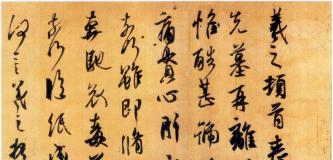 羲之頓首喪
先墓再離
惟酷甚號
痛貫心肝
奈何雖即脩
奔馳哀毒
奈何臨紙感
何言羲之頓